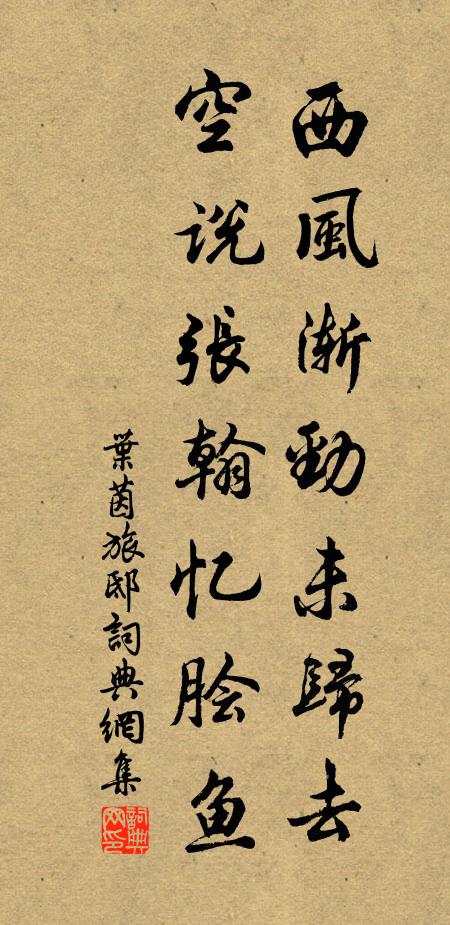 西風漸勁未歸去
空说張翰忆脍鱼
葉茵旅邸詞典網集
詞典网印